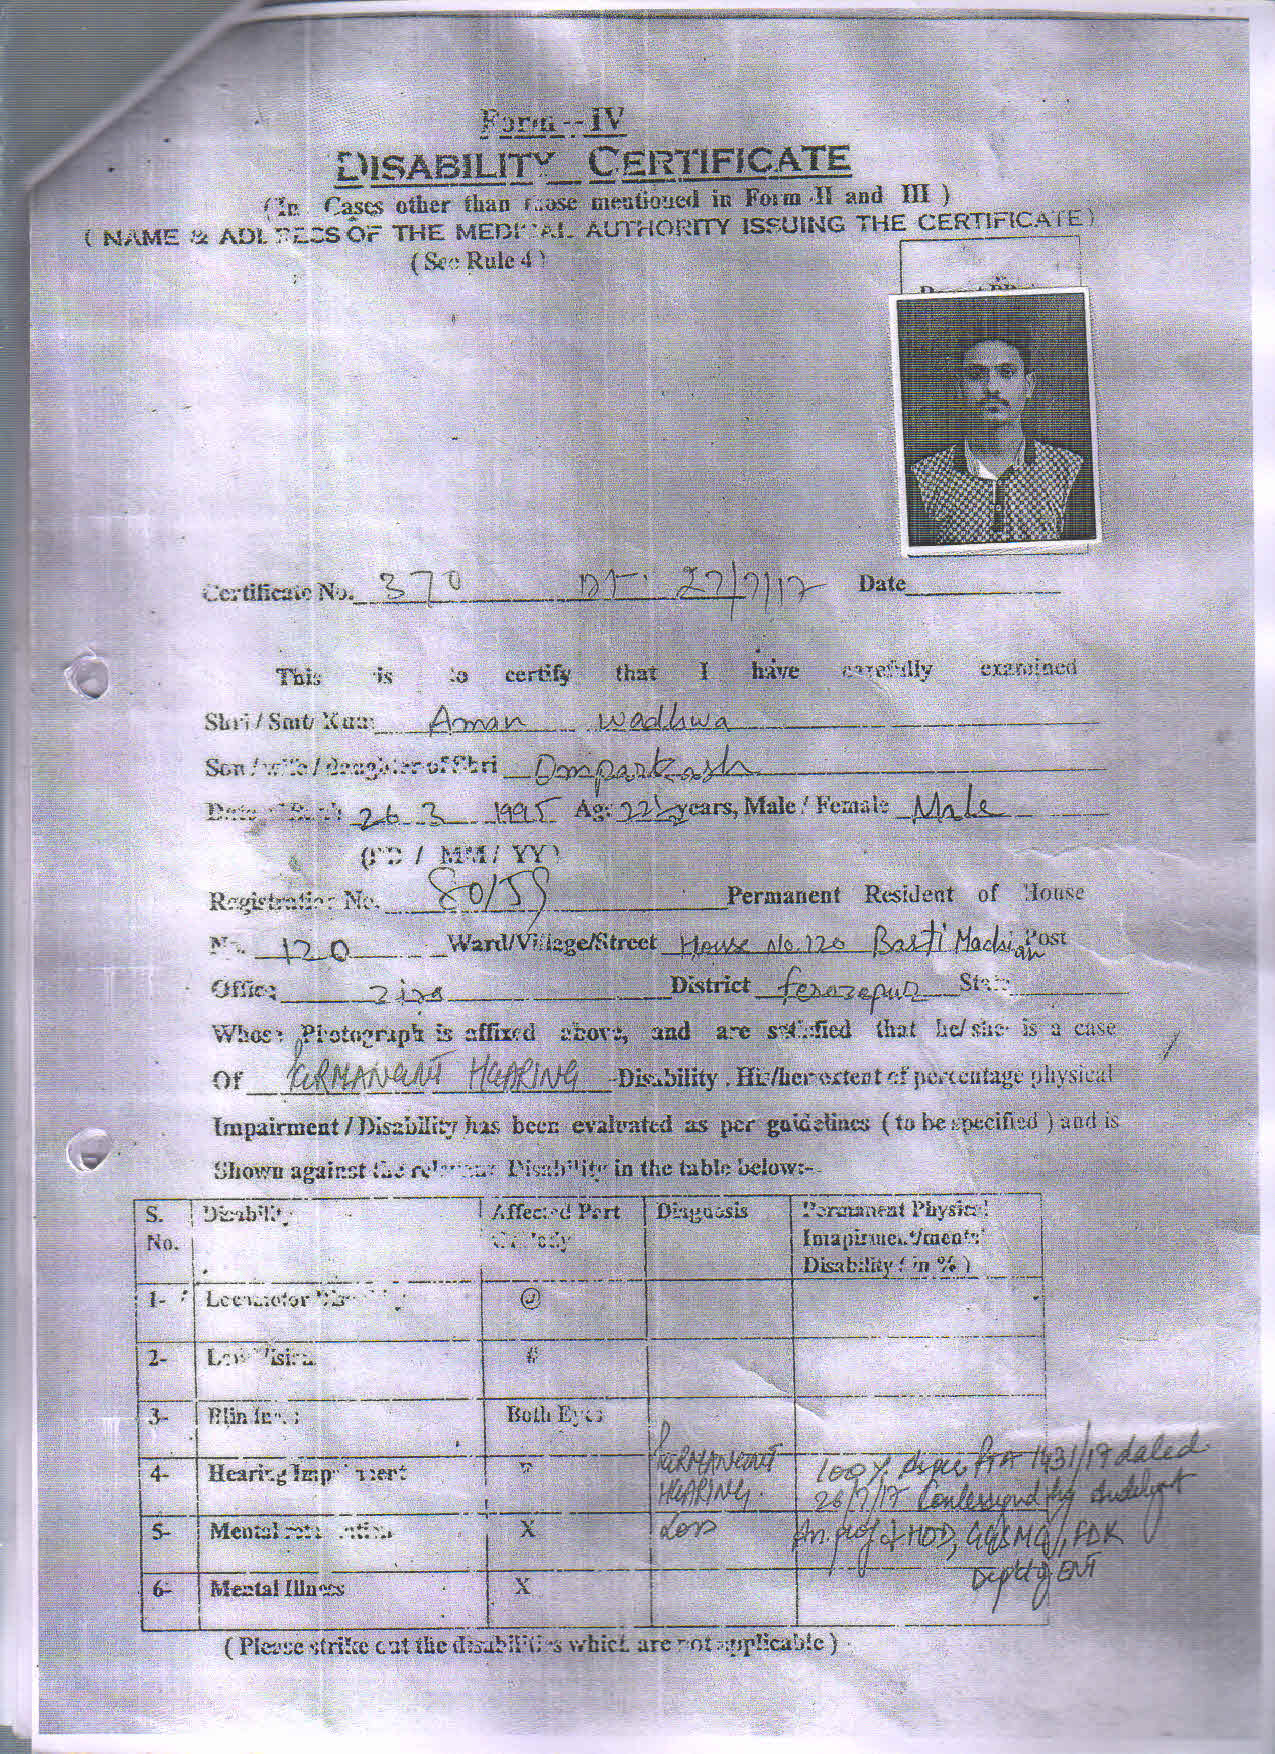 Form - IV
DISABILITY CERTIFICATE
( In Cases other than those mentioned in Form II and III )
( NAME & ADDRESS OF THE MEDICAL AUTHORITY ISSUING THE CERTIFICATE )
( See Rule 4 )
Certificate No. 370 DT. 27/7/17 Date
This is to certify that I have carefully examined
Shri / Smt / Kum Aman Wadhwa
Son / wife / daughter of Shri Omparkash
Date of Birth 26 3 1995 Age 22½ years, Male / Female Male
(DD / MM / YY)
Registration No. 80/59 Permanent Resident of House
No. 120 Ward/Village/Street House No. 120 Basti Machian Post
Office Zira District Ferozepur State
Whose Photograph is affixed above, and are satisfied that he/she is a case
Of PERMANENT HEARING Disability . His/her extent of percentage physical
Impairment / Disability has been evaluated as per guidelines ( to be specified ) and is
Shown against the relevant Disability in the table below:-
S. No. Disability Affected Part of body Diagnosis Permanent Physical Imapirment/mental Disability ( in % )
1- Locomotor Disability @
2- Low Vision #
3- Blindness Both Eyes
4- Hearing Impairment PERMANENT HEARING Loss 100% PTA 1431/17 dated 26/7/17 by
HOD, GGSMC, FDK Deptt of ENT
5- Mental retardation X
6- Mental Illness X
( Please strike out the disabilities which are not applicable )